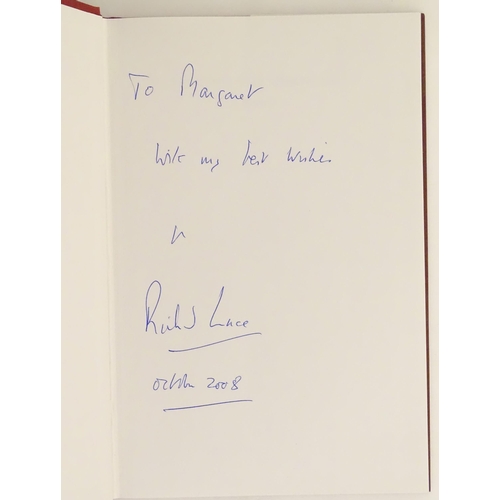 To Margaret
with my best wishes
Richard Luce
October 2008